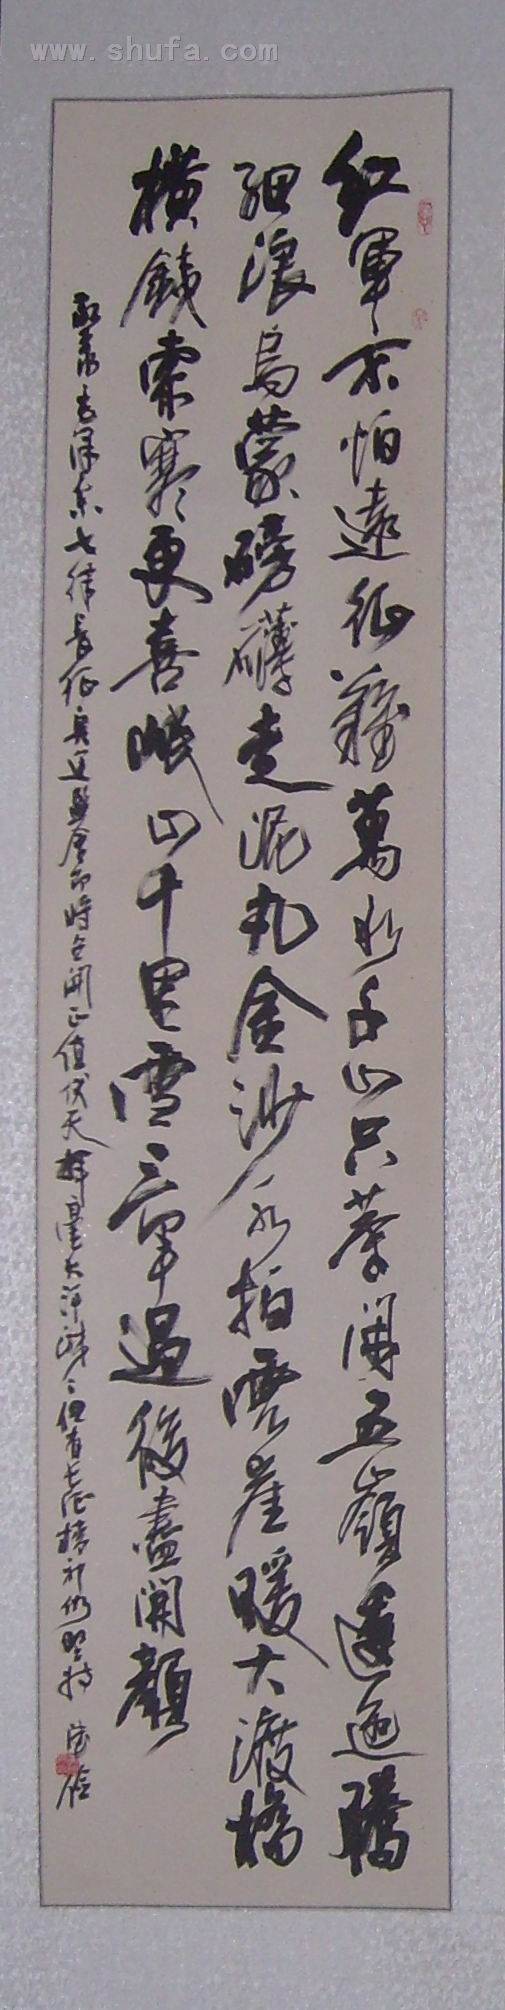 www.shufa.com
红軍不怕遠征難萬水千山只等闲五嶺逶迤騰
细浪烏蒙磅礴走泥丸金沙水拍雲崖暖大渡橋
横鐵索寒更喜岷山千里雪三軍過後盡開顏
毛泽东七律長征